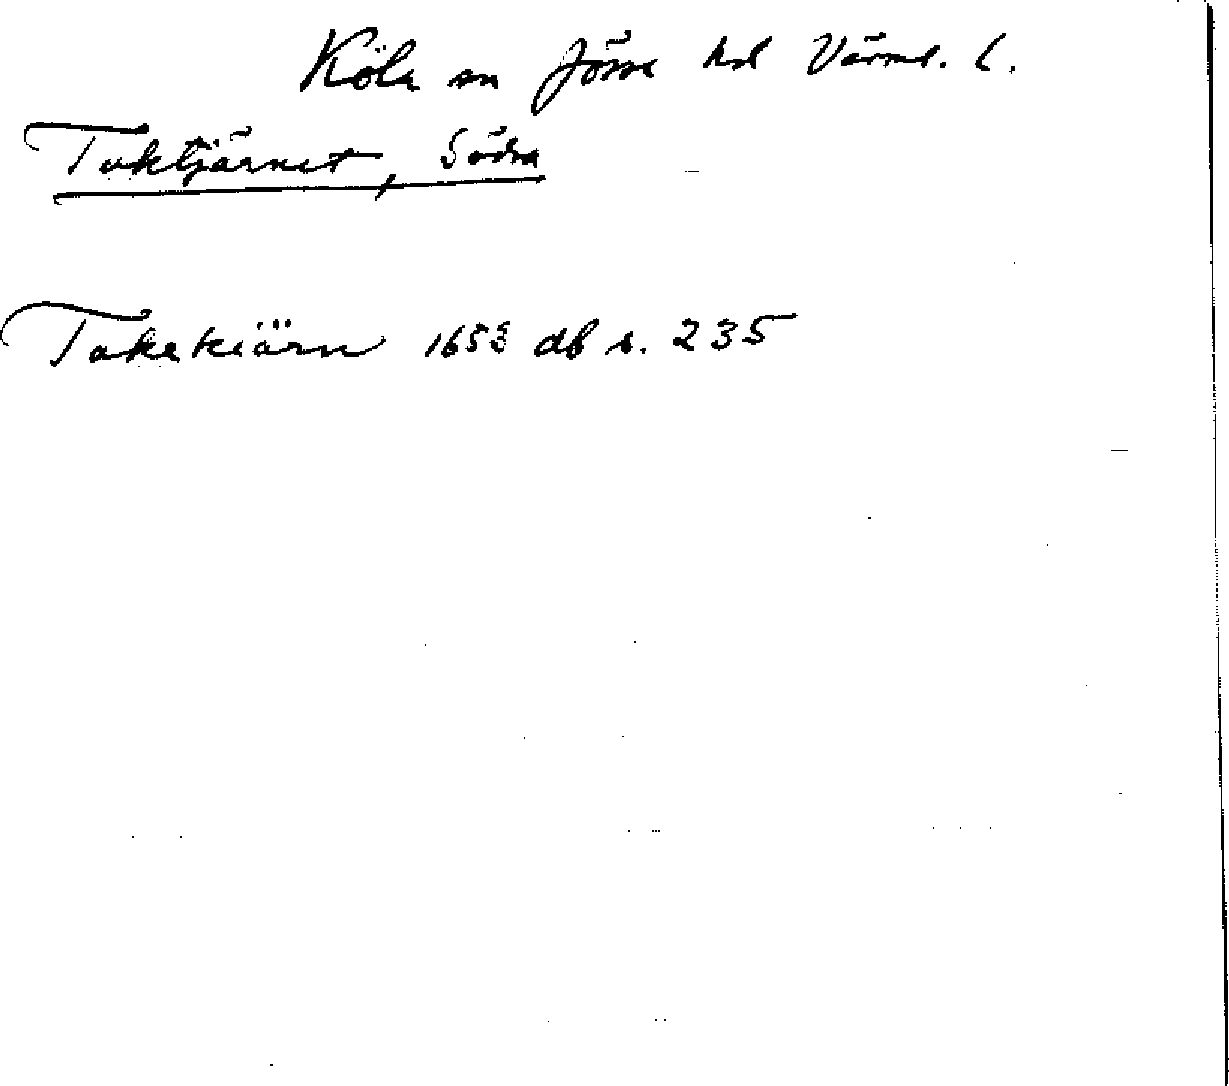 Köla sn Jösse hd Värml. l.
Toktjärnet, Södra
Tokekiärn 1653 db s. 235